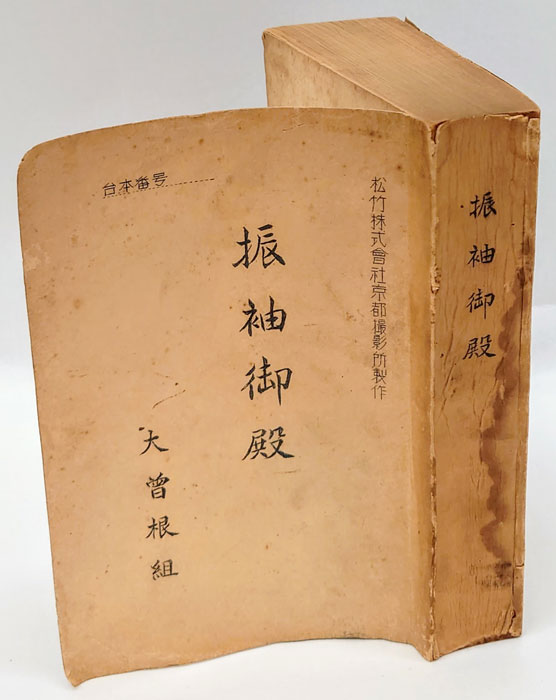 松竹株式會社京都撮影所製作
振袖御殿
大曾根組
台本番号
振袖御殿